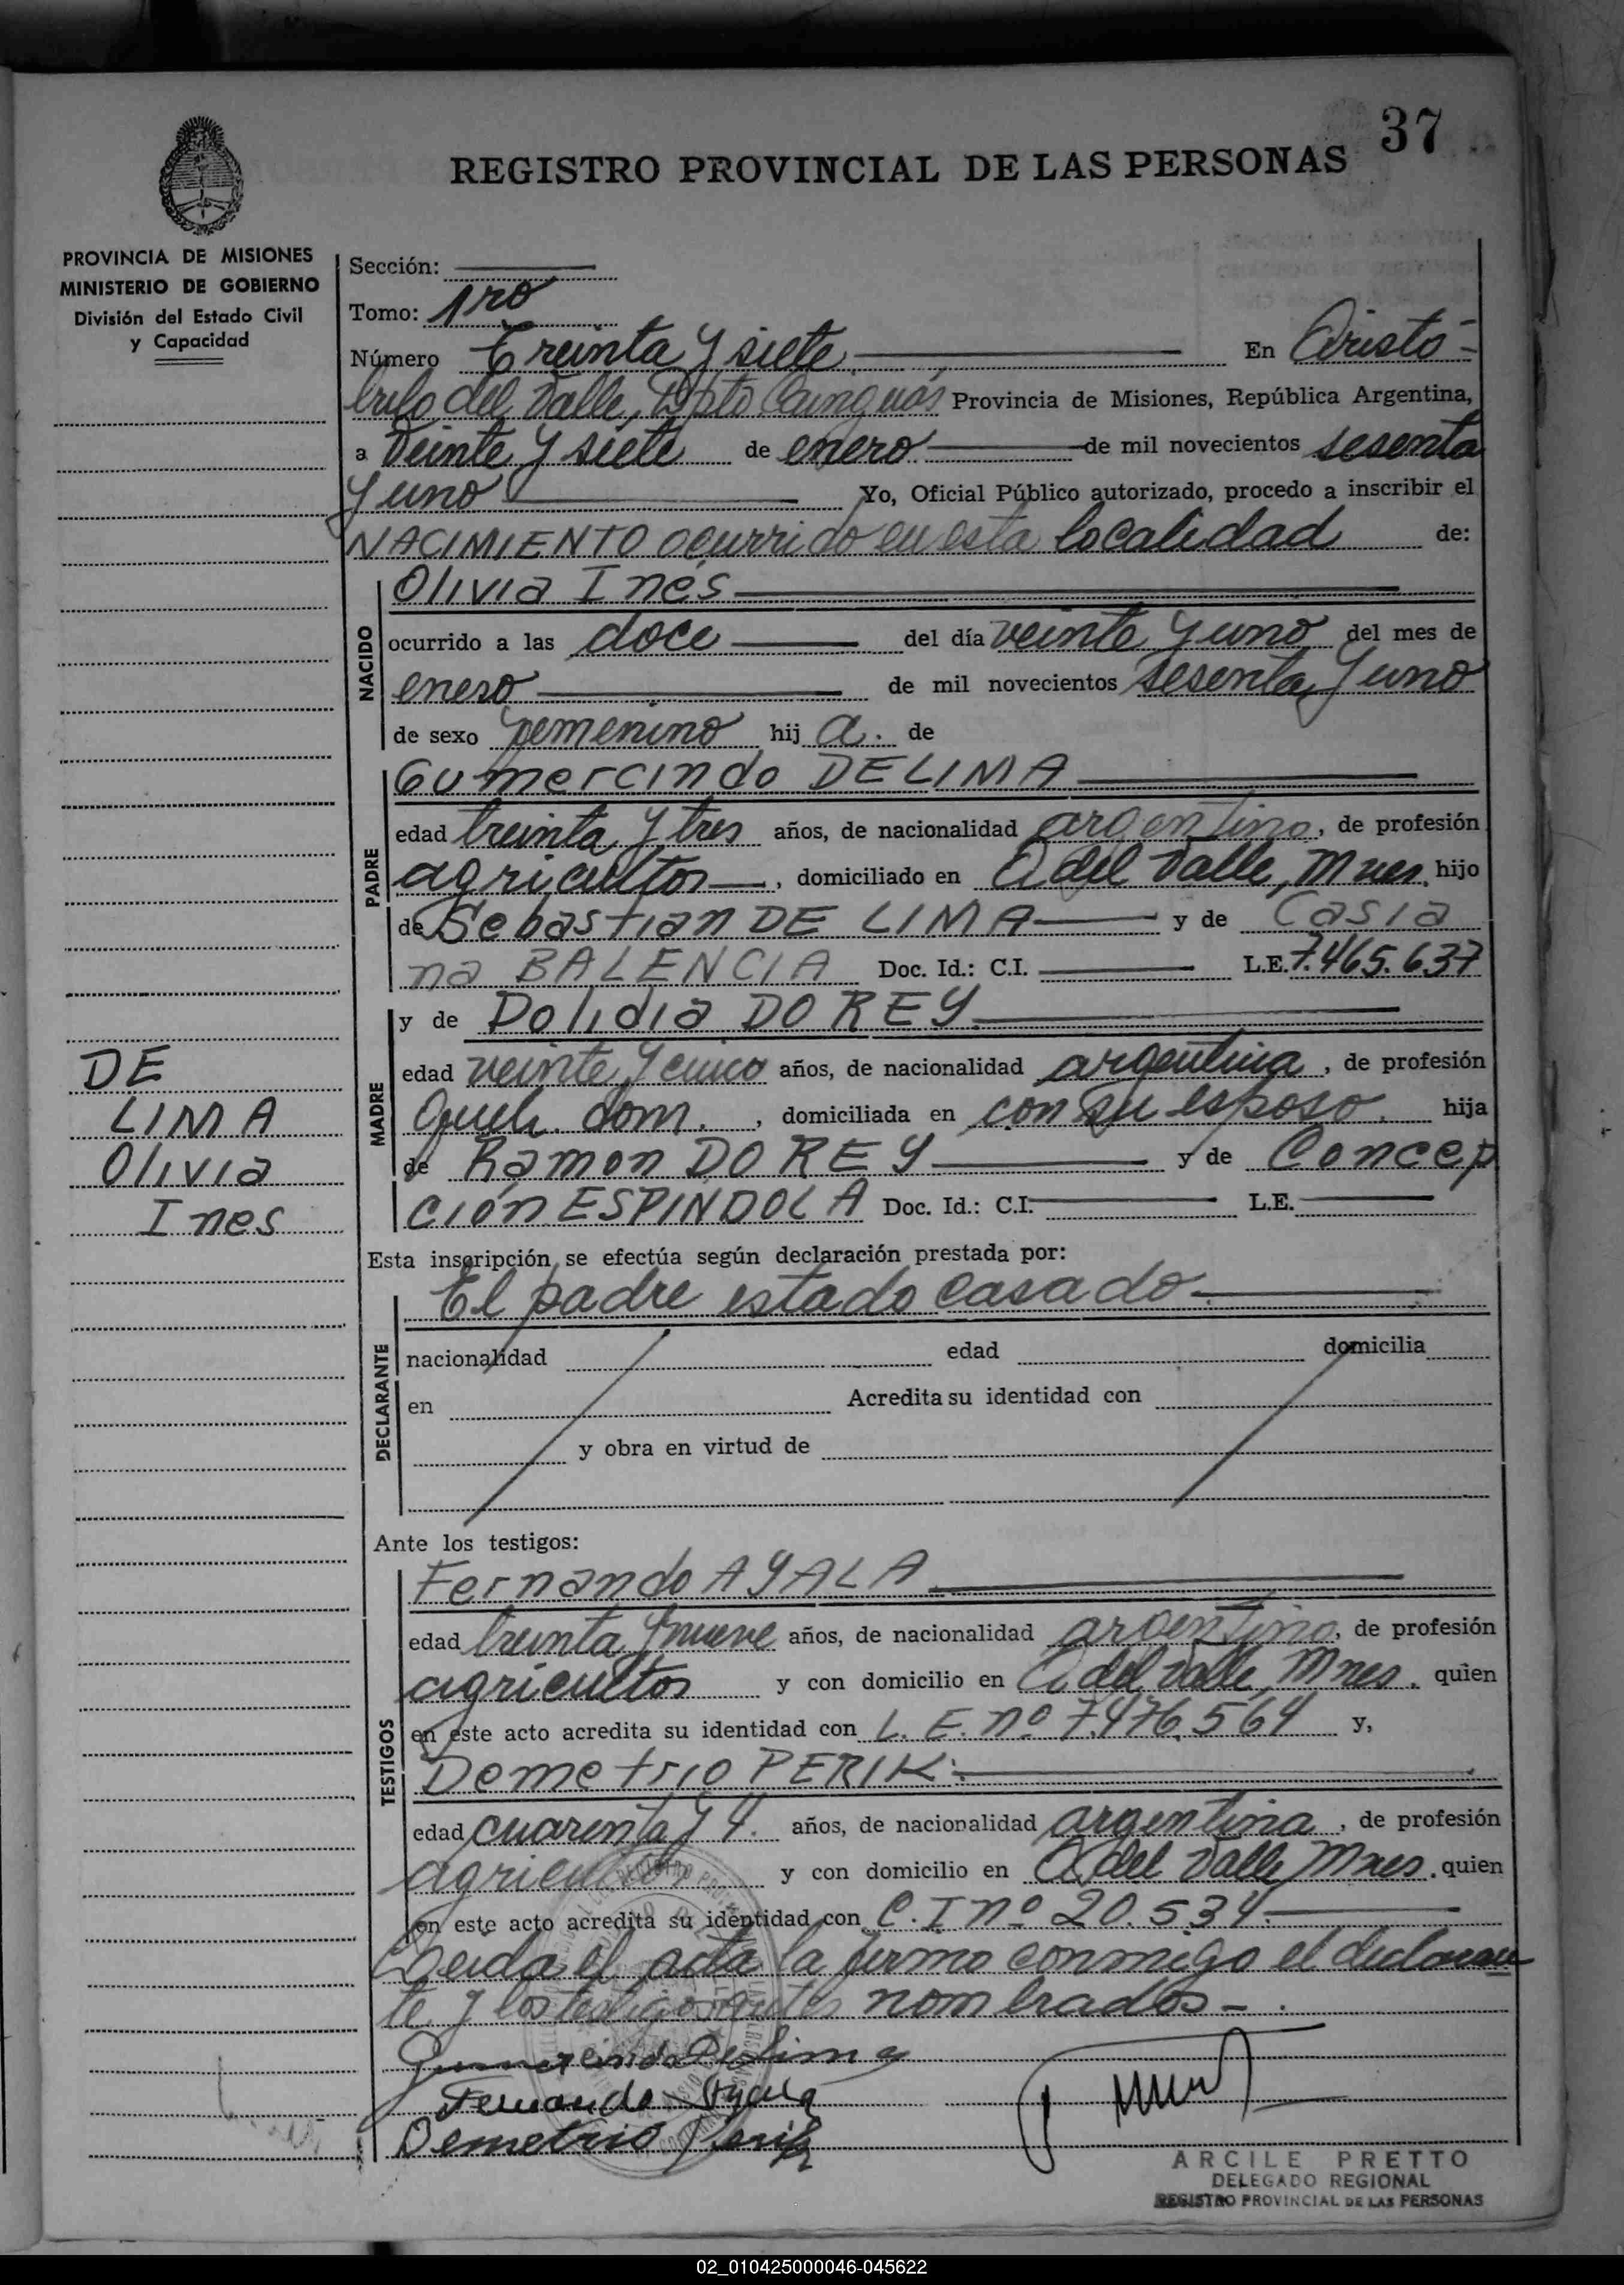 37
REGISTRO PROVINCIAL DE LAS PERSONAS
PROVINCIA DE MISIONES
MINISTERIO DE GOBIERNO
División del Estado Civil
y Capacidad
Sección:
Tomo: 1ro
Número Treinta y siete En Aristó-
bulo del Valle, Dpto Cainguás Provincia de Misiones, República Argentina,
a veinte y siete de enero de mil novecientos sesenta
y uno Yo, Oficial Público autorizado, procedo a inscribir el
NACIMIENTO ocurrido en esta localidad de:
NACIDO
Olivia Inés
ocurrido a las doce del día veinte y uno del mes de
enero de mil novecientos sesenta y uno
de sexo femenino hij a. de
PADRE
Gumercindo DE LIMA
edad treinta y tres años, de nacionalidad argentino, de profesión
agricultor, domiciliado en A del Valle, Mnes. hijo
de Sebastian DE LIMA y de Casia
na BALENCIA Doc. Id.: C.I. L.E. 7.465.637
MADRE
y de Dolidia DO REY
edad veinte y cinco años, de nacionalidad argentina, de profesión
Queh. dom., domiciliada en con su esposo. hija
de Ramon DO REY y de Concep
ción ESPINDOLA Doc. Id.: C.I. L.E.
DE
LIMA
Olivia
Ines
Esta inscripción se efectúa según declaración prestada por:
DECLARANTE
El padre estado casado
nacionalidad edad domicilia
en Acredita su identidad con
y obra en virtud de
Ante los testigos:
TESTIGOS
Fernando AYALA
edad treinta y nueve años, de nacionalidad argentino, de profesión
agricultor y con domicilio en A del Valle, Mnes. quien
en este acto acredita su identidad con L. E. nº 7.476.564 y,
Demetrio PERIK.
edad cuarenta y 4. años, de nacionalidad argentina, de profesión
agricultor y con domicilio en A del Valle Mnes. quien
en este acto acredita su identidad con C. I nº 20.534.
Leida el acta la firma conmigo el declaran
te y los testigos antes nombrados-.
Gumercindo De Lima
Fernando Ayala
Demetrio Perik
ARCILE PRETTO
DELEGADO REGIONAL
REGISTRO PROVINCIAL DE LAS PERSONAS
02_010425000046-045622